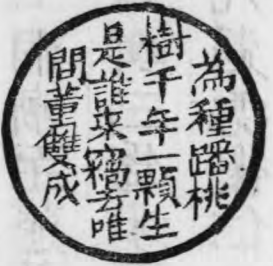 為種蟠桃
樹千年一顆生
是誰來竊去唯
問董雙成